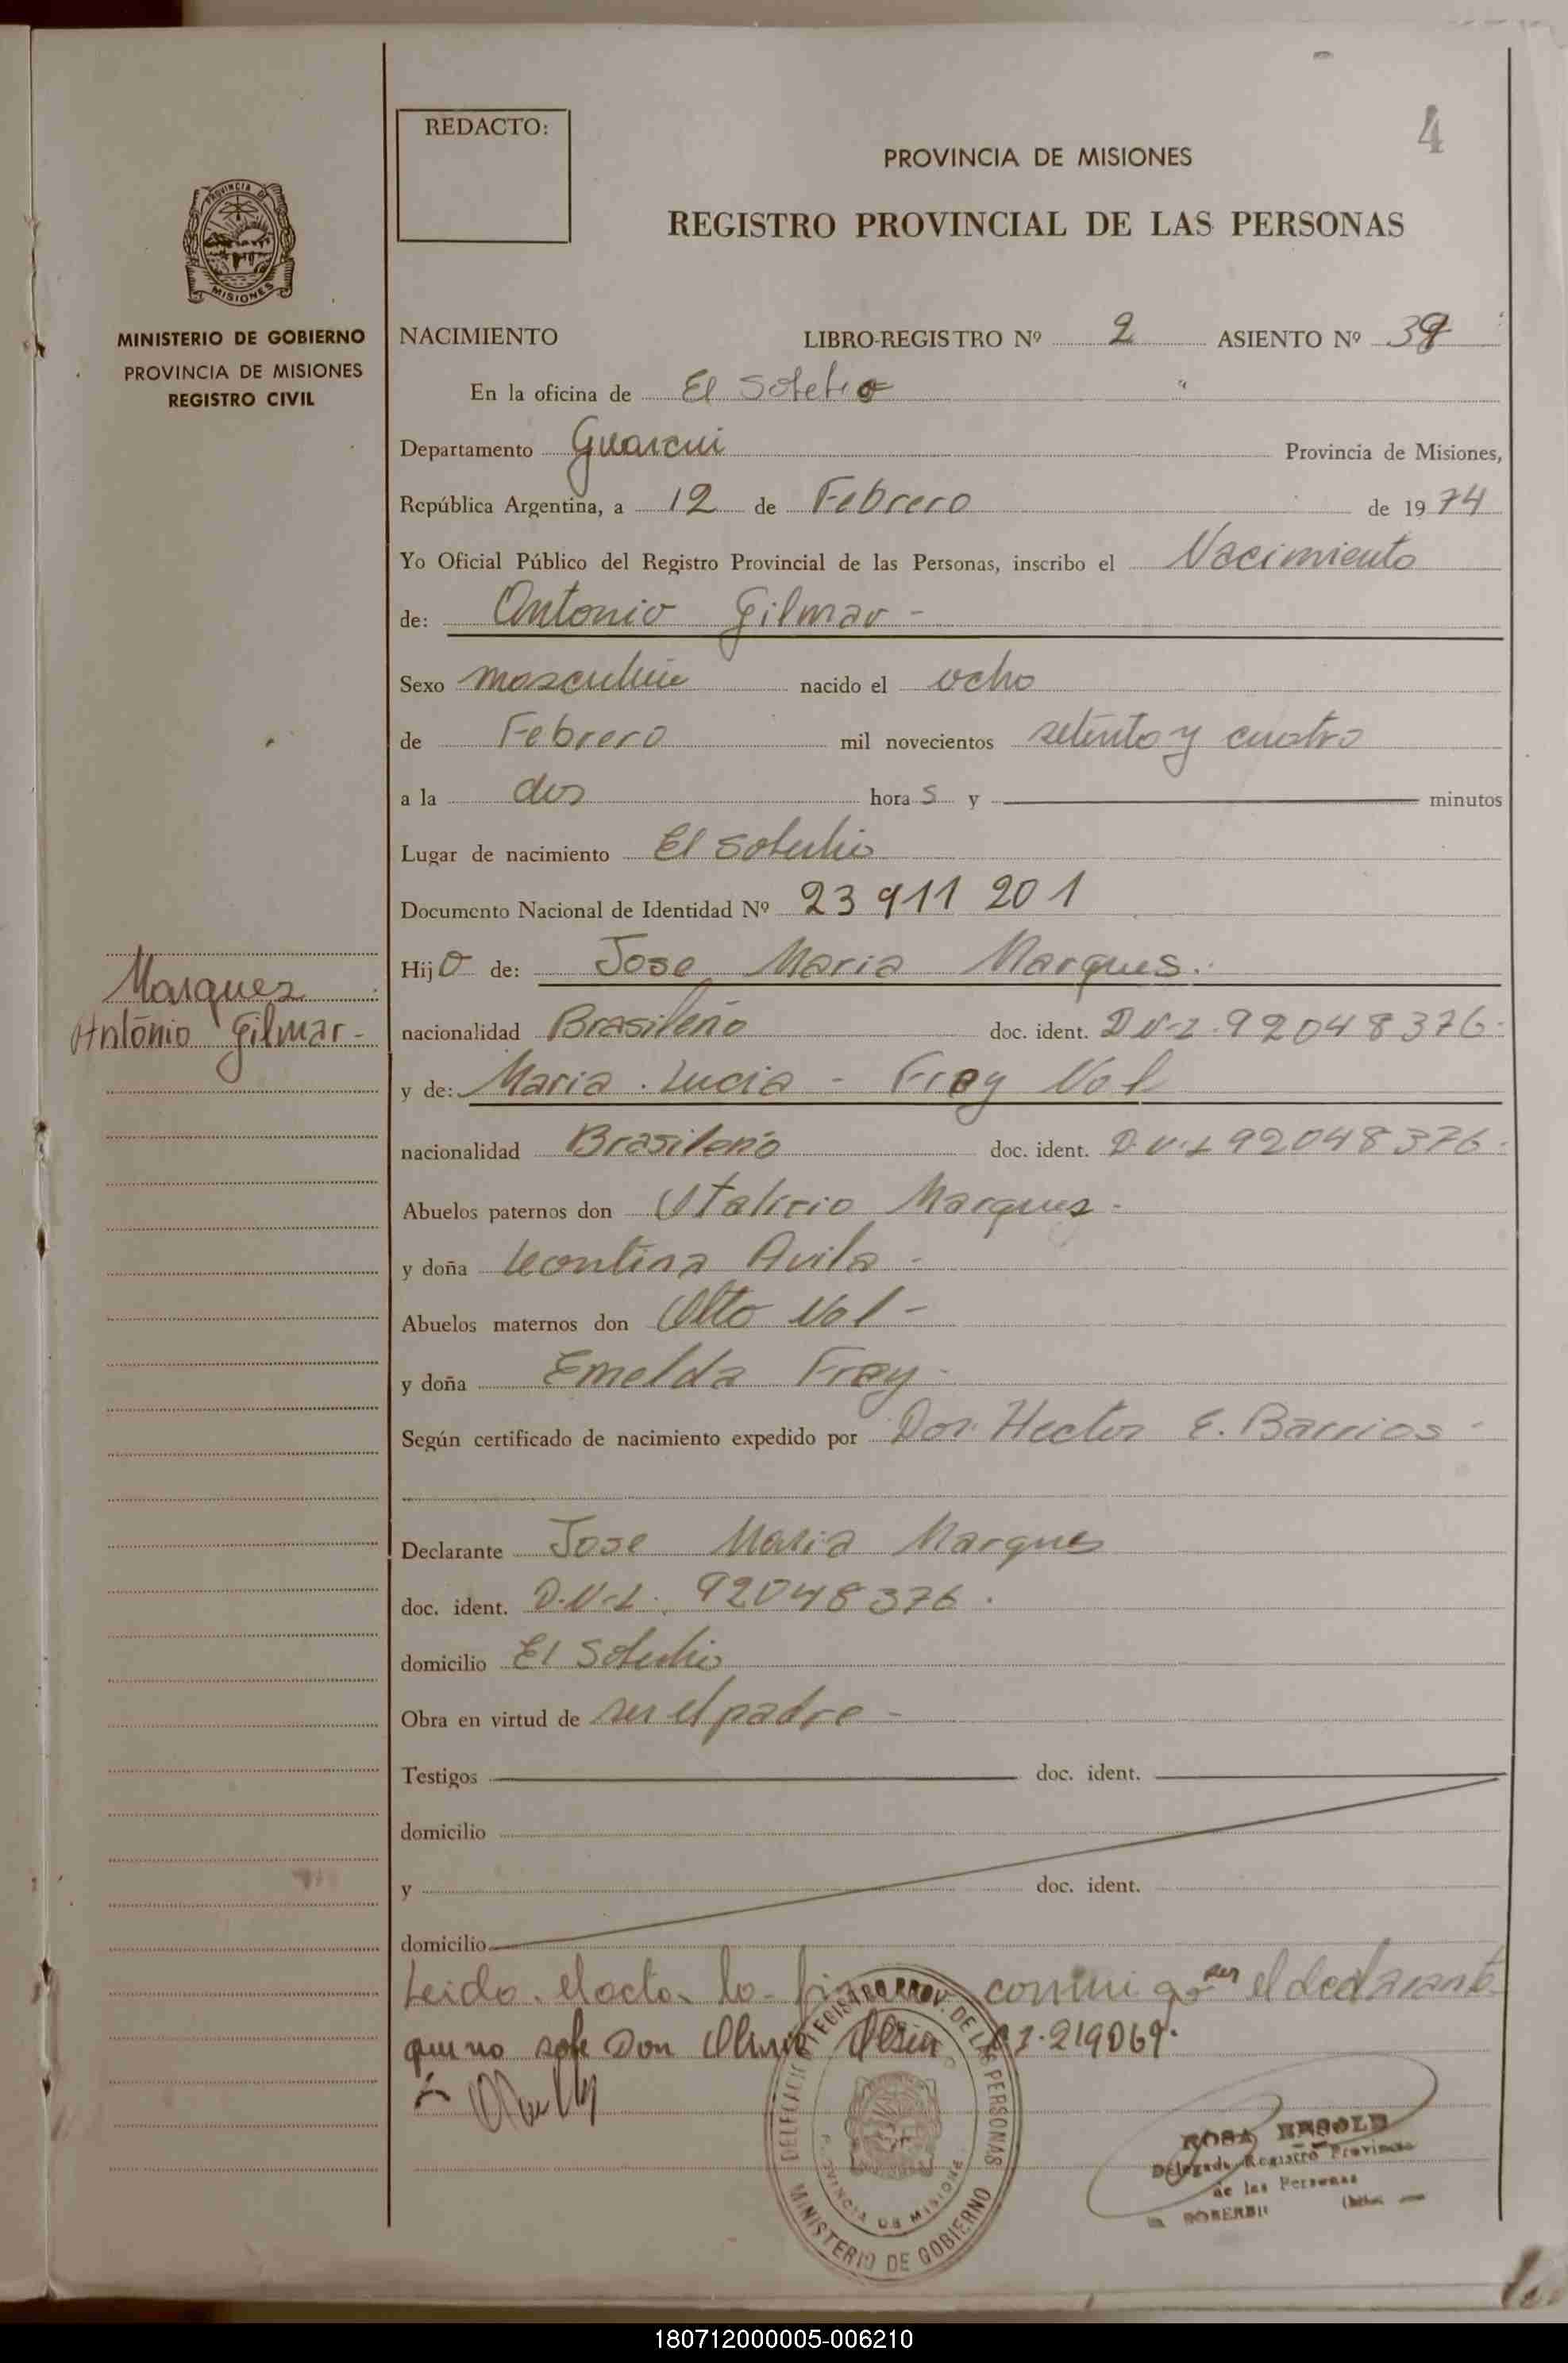 4
REDACTO:
PROVINCIA DE MISIONES
REGISTRO PROVINCIAL DE LAS PERSONAS
PROVINCIA DE
MISIONES
MINISTERIO DE GOBIERNO
PROVINCIA DE MISIONES
REGISTRO CIVIL
NACIMIENTO LIBRO-REGISTRO Nº 2 ASIENTO Nº 39
En la oficina de El
Departamento Guarani Provincia de Misiones,
República Argentina, a 12 de Febrero de 1974
Yo Oficial Público del Registro Provincial de las Personas, inscribo el Nacimiento
de: Antonio Gilmar -
Sexo masculino nacido el ocho
de Febrero mil novecientos setenta y cuatro
a la dos hora s y minutos
Lugar de nacimiento El
Documento Nacional de Identidad Nº 23 911 201
Hijo de: Jose Maria Marques.
Marquez
Antonio Gilmar -
nacionalidad Brasileño doc. ident. D.N.I. 92048376-
y de: Maria Lucia - Frey Nol
nacionalidad Brasileño doc. ident. D.N.I 92048376-
Abuelos paternos don Marques -
y doña Leontina Avila -
Abuelos maternos don Otto Nol -
y doña Emelda Frey -
Según certificado de nacimiento expedido por Don Hector E. Barrios -
Declarante Jose Maria Marques
doc. ident. D.N.I. 92048376.
domicilio El
Obra en virtud de ser el padre -
Testigos doc. ident.
domicilio
y doc. ident.
domicilio
Leido el acta lo conmigo por el declarante
que no sabe Don CI. 219069.
DELEGACION REGISTRO PROV. DE LAS PERSONAS
PROVINCIA DE MISIONES
MINISTERIO DE GOBIERNO
ROSA
Delegada Registro Provincial
de las Personas
180712000005-006210